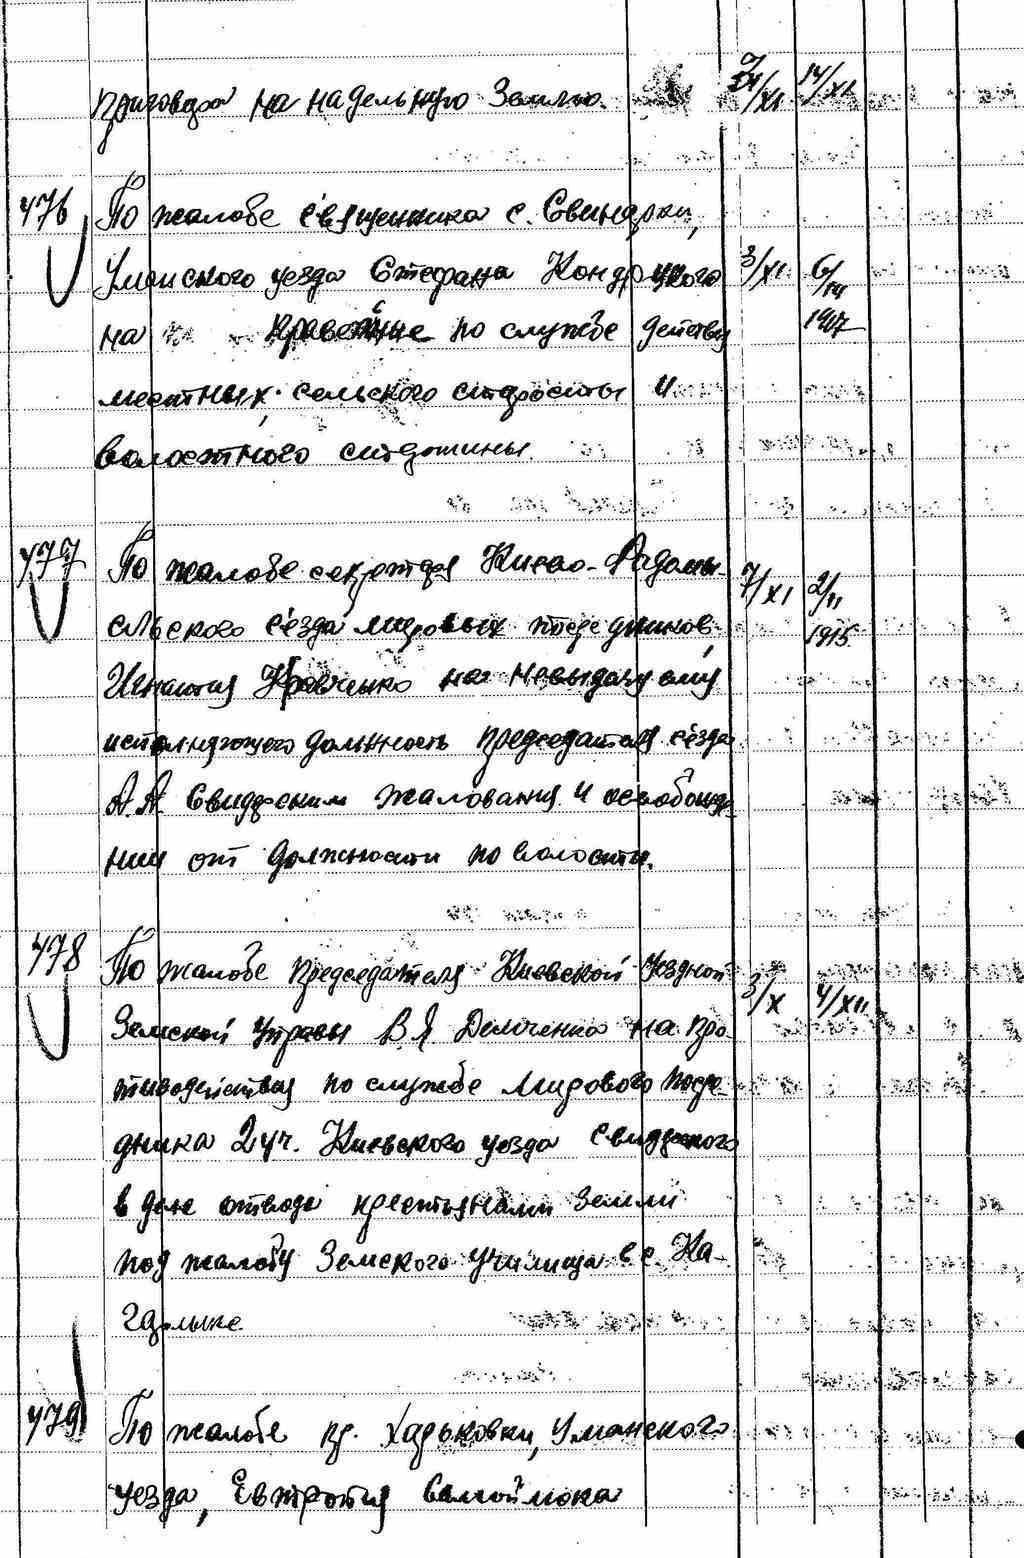 приговора на надельную землю. 7/XI 14/XI
476 По жалобе священника с. Свинарки,
Уманского уезда Стефана Кондрацкого 3/XI 6/
на неправельные по службе действия 1907
местных сельского старосты и
волостного старшины
477 По жалобе секретаря Киево-Радомы- 7/XI 2/II
сльского съезда мировых посредников, 1915
Игнатия Кравченко на невыдачу ему
исполняющего должность председателя съезда
А.А. Свидерским жалования и освобожде
нии от должности по волости.
478 По жалобе председателя Киевской уездной 3/X 4/XII
Земской управы В.Я. Демченко на про-
тиводействия по службе мирового посре-
дника 2 уч. Киевского уезда Свидерского
в деле отвода крестьянами земли
под жалобу Земского училища в с. Ка-
гарлыке.
479 По жалобе кр. Харьковки, Уманского
уезда, Евтропия